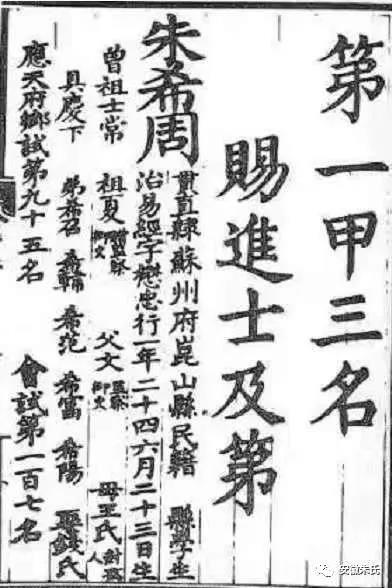 第一甲三名
賜進士及第
朱希周
貫直隸蘇州府崑山縣民籍 縣學生
治易經字懋忠行一年二十四六月二十三日生
曾祖士常 祖夏 御史 父文 監察御史 母王氏 封孺人
具慶下 弟希召 希輔 希 希富 希陽 娶錢氏
應天府鄉試第九十五名 會試第一百七名
安徽朱氏